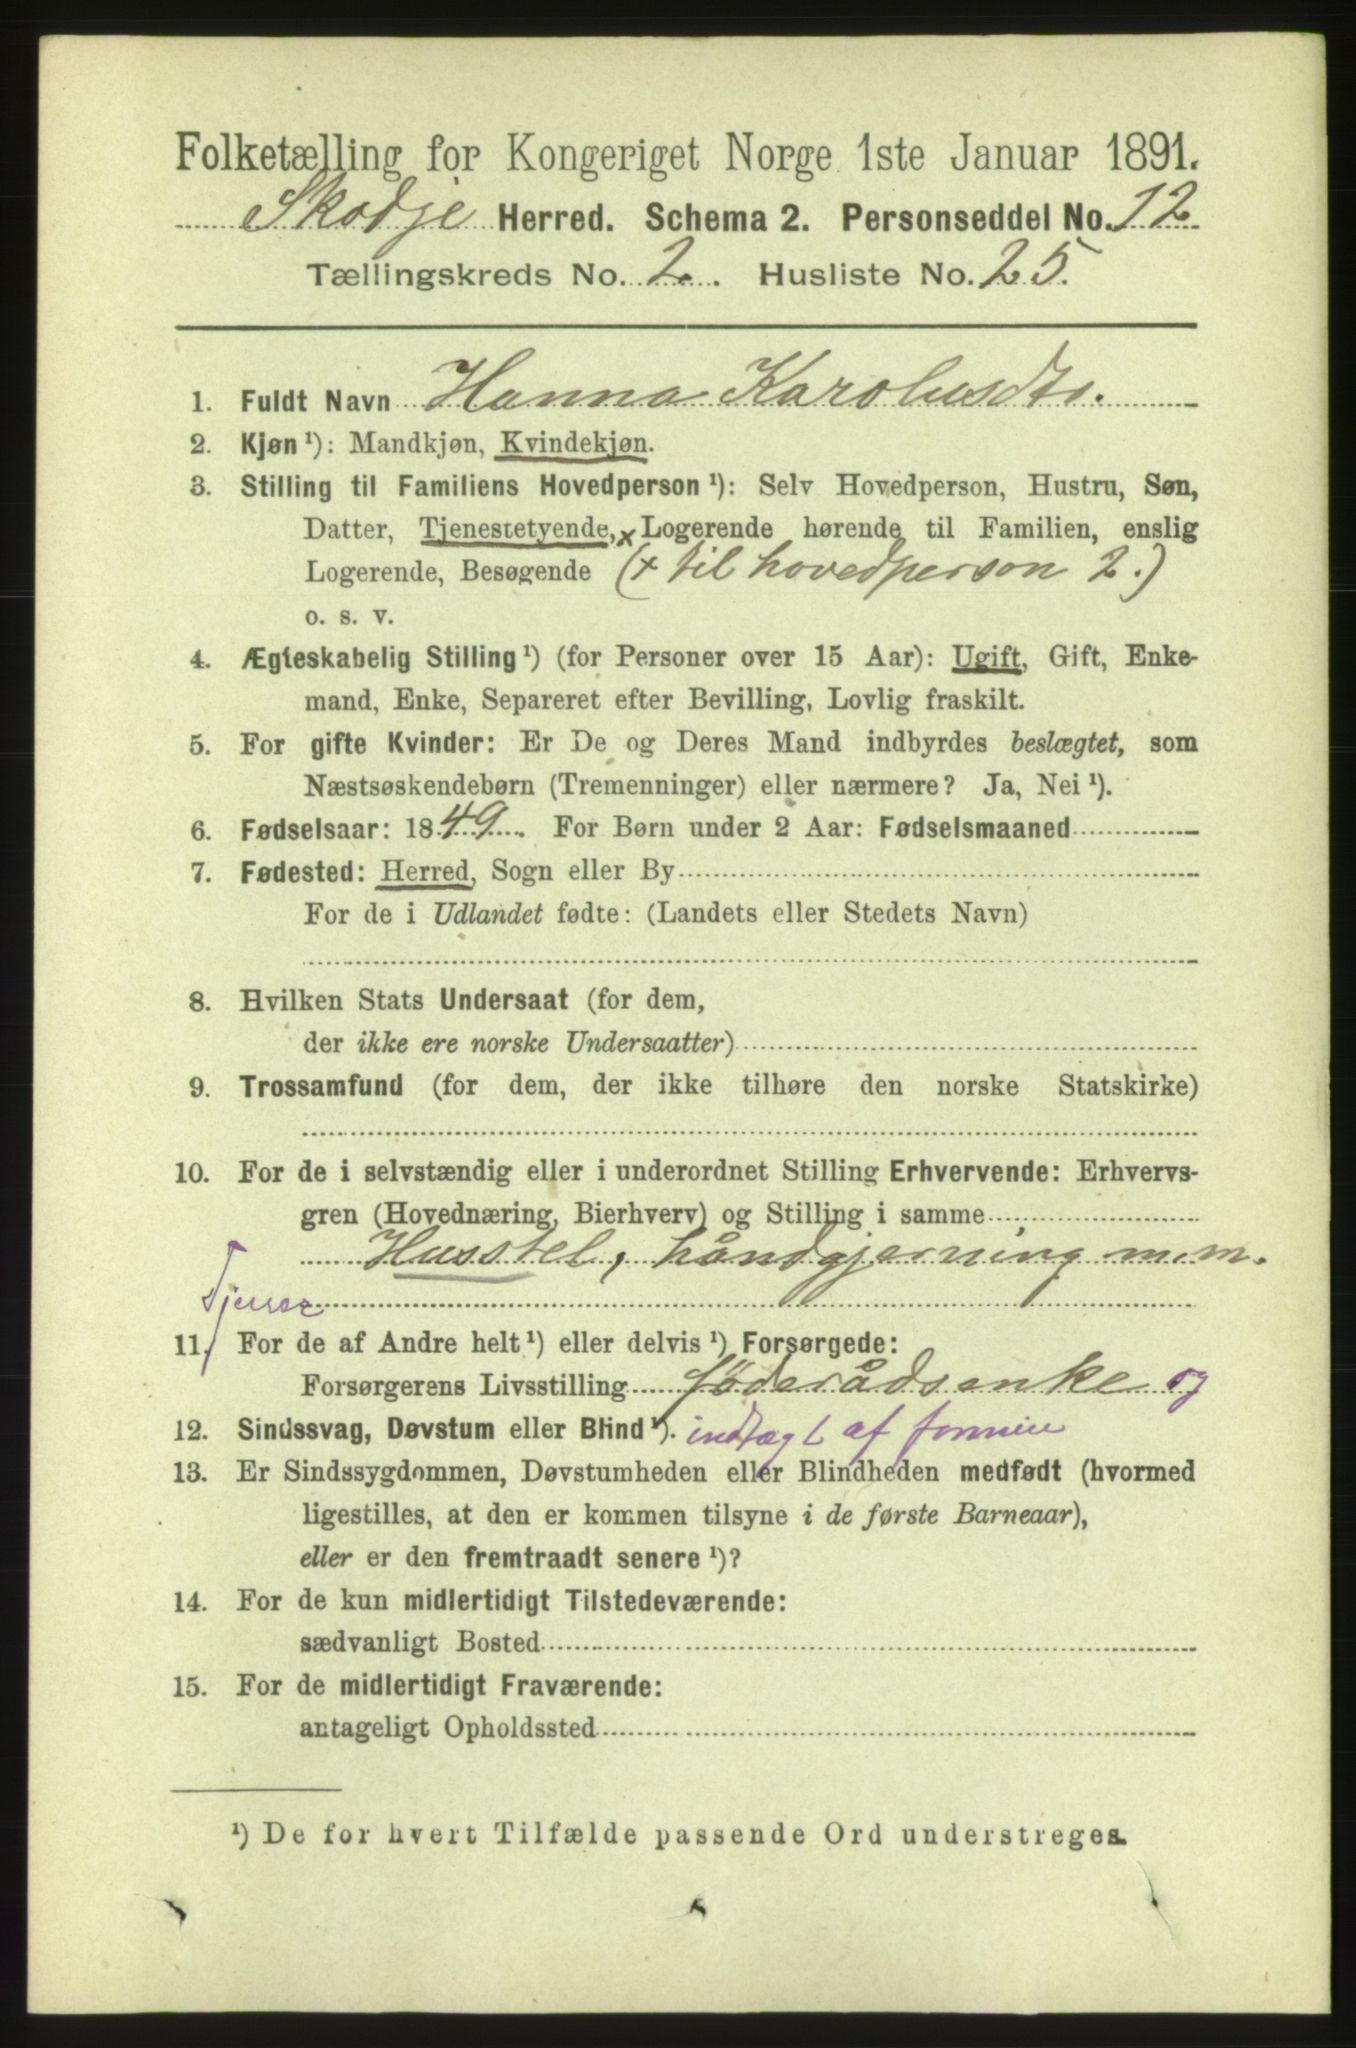 Folketælling for Kongeriget Norge 1ste Januar 1891.
Skodje Herred. Schema 2. Personseddel No. 12
Tællingskreds No. 2. Husliste No. 25.
1. Fuldt Navn Hanna Karolusdtr.
2. Kjøn ¹): Mandkjøn, Kvindekjøn.
3. Stilling til Familiens Hovedperson ¹): Selv Hovedperson, Hustru, Søn,
Datter, Tjenestetyende, x Logerende hørende til Familien, enslig
Logerende, Besøgende (x til hovedperson 2.)
o. s. v.
4. Ægteskabelig Stilling ¹) (for Personer over 15 Aar): Ugift, Gift, Enke-
mand, Enke, Separeret efter Bevilling, Lovlig fraskilt.
5. For gifte Kvinder: Er De og Deres Mand indbyrdes beslægtet, som
Næstsøskendebørn (Tremenninger) eller nærmere? Ja, Nei ¹).
6. Fødselsaar: 1849. For Børn under 2 Aar: Fødselsmaaned
7. Fødested: Herred, Sogn eller By
For de i Udlandet fødte: (Landets eller Stedets Navn)
8. Hvilken Stats Undersaat (for dem,
der ikke ere norske Undersaatter)
9. Trossamfund (for dem, der ikke tilhøre den norske Statskirke)
10. For de i selvstændig eller i underordnet Stilling Erhvervende: Erhvervs-
gren (Hovednæring, Bierhverv) og Stilling i samme
Husstel, håndgjerning m.m.
Tjener
11. For de af Andre helt ¹) eller delvis ¹) Forsørgede:
Forsørgerens Livsstilling føderådsenke og
12. Sindssvag, Døvstum eller Blind ¹). indtægt af formue
13. Er Sindssygdommen, Døvstumheden eller Blindheden medfødt (hvormed
ligestilles, at den er kommen tilsyne i de første Barneaar),
eller er den fremtraadt senere ¹)?
14. For de kun midlertidigt Tilstedeværende:
sædvanligt Bosted
15. For de midlertidigt Fraværende:
antageligt Opholdssted
¹) De for hvert Tilfælde passende Ord understreges.